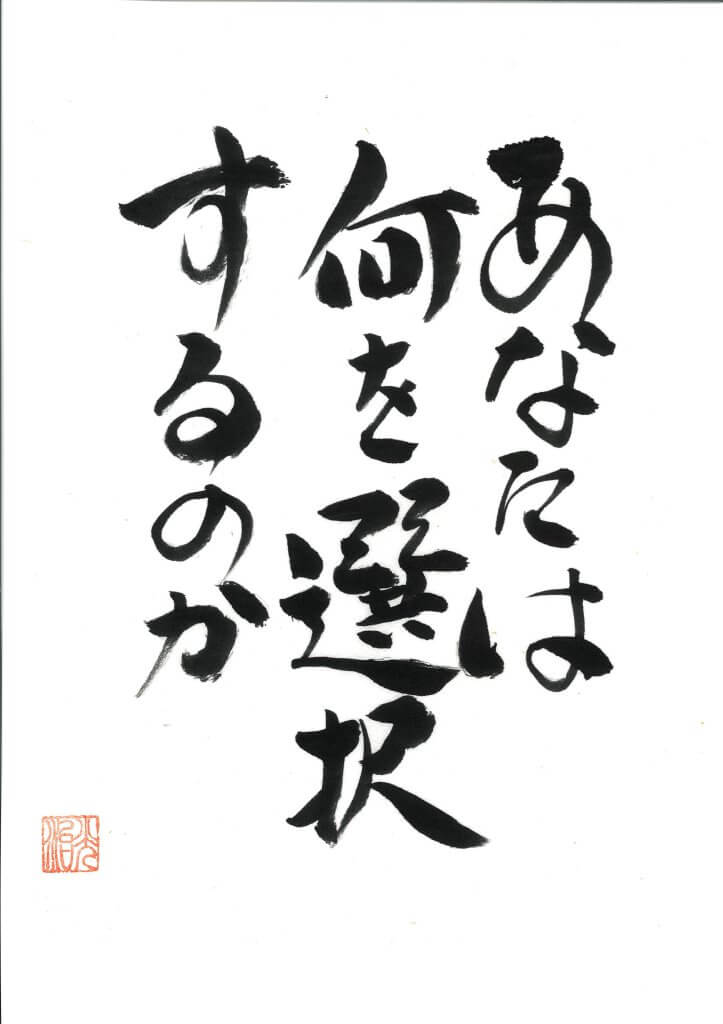 あなたは
何を選択
するのか